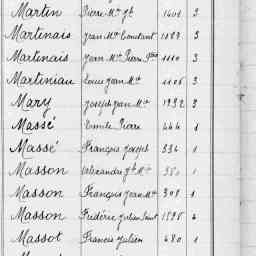 Martin Pierre Mie 1401 3
Martinais Jean Mie Constant 1183 3
Martinais Jean Mie Pierre 1110 3
Martiniau Louis Jean Mie 1106 3
Mary Joseph Jean Mie 1932 3
Massé Emile Pierre 444 1
Massé François Joseph 334 1
Masson Alexandre Mie 351 1
Masson François Jean Mie 308 1
Masson Frédéric Julien 1595 4
Massot Francis Julien 480 1